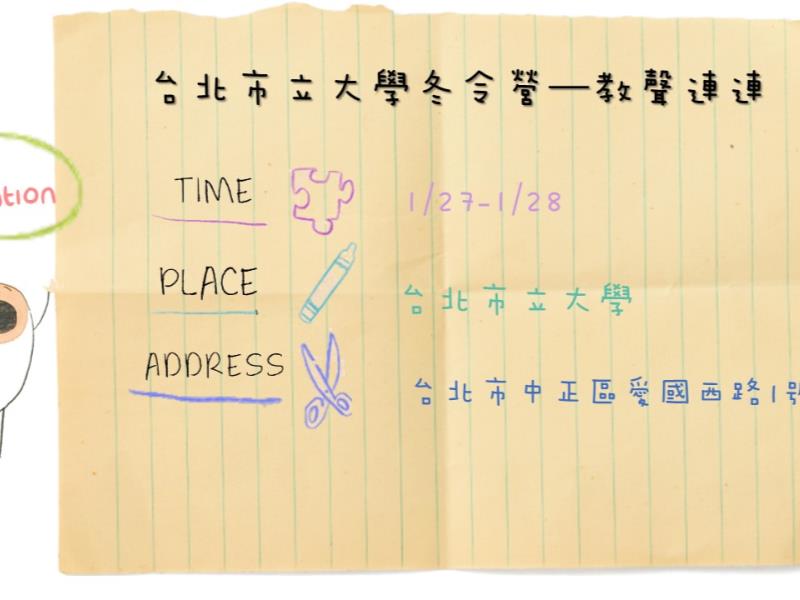 台北市立大學冬令營—教聲連連
TIME
1/27-1/28
PLACE
台北市立大學
ADDRESS
台北市中正區愛國西路1號